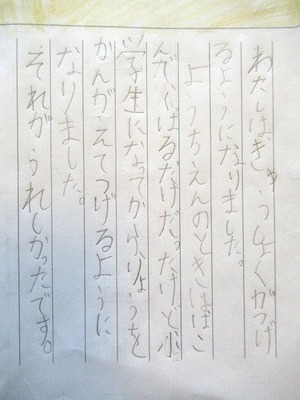 わたしはぎゅうにゅうがつげ
るようになりました。
ようちえんのときははこ
んでくばるだけだったけど小
学生になってからりょうを
かんがえてつげるように
なりました。
それがうれしかったです。